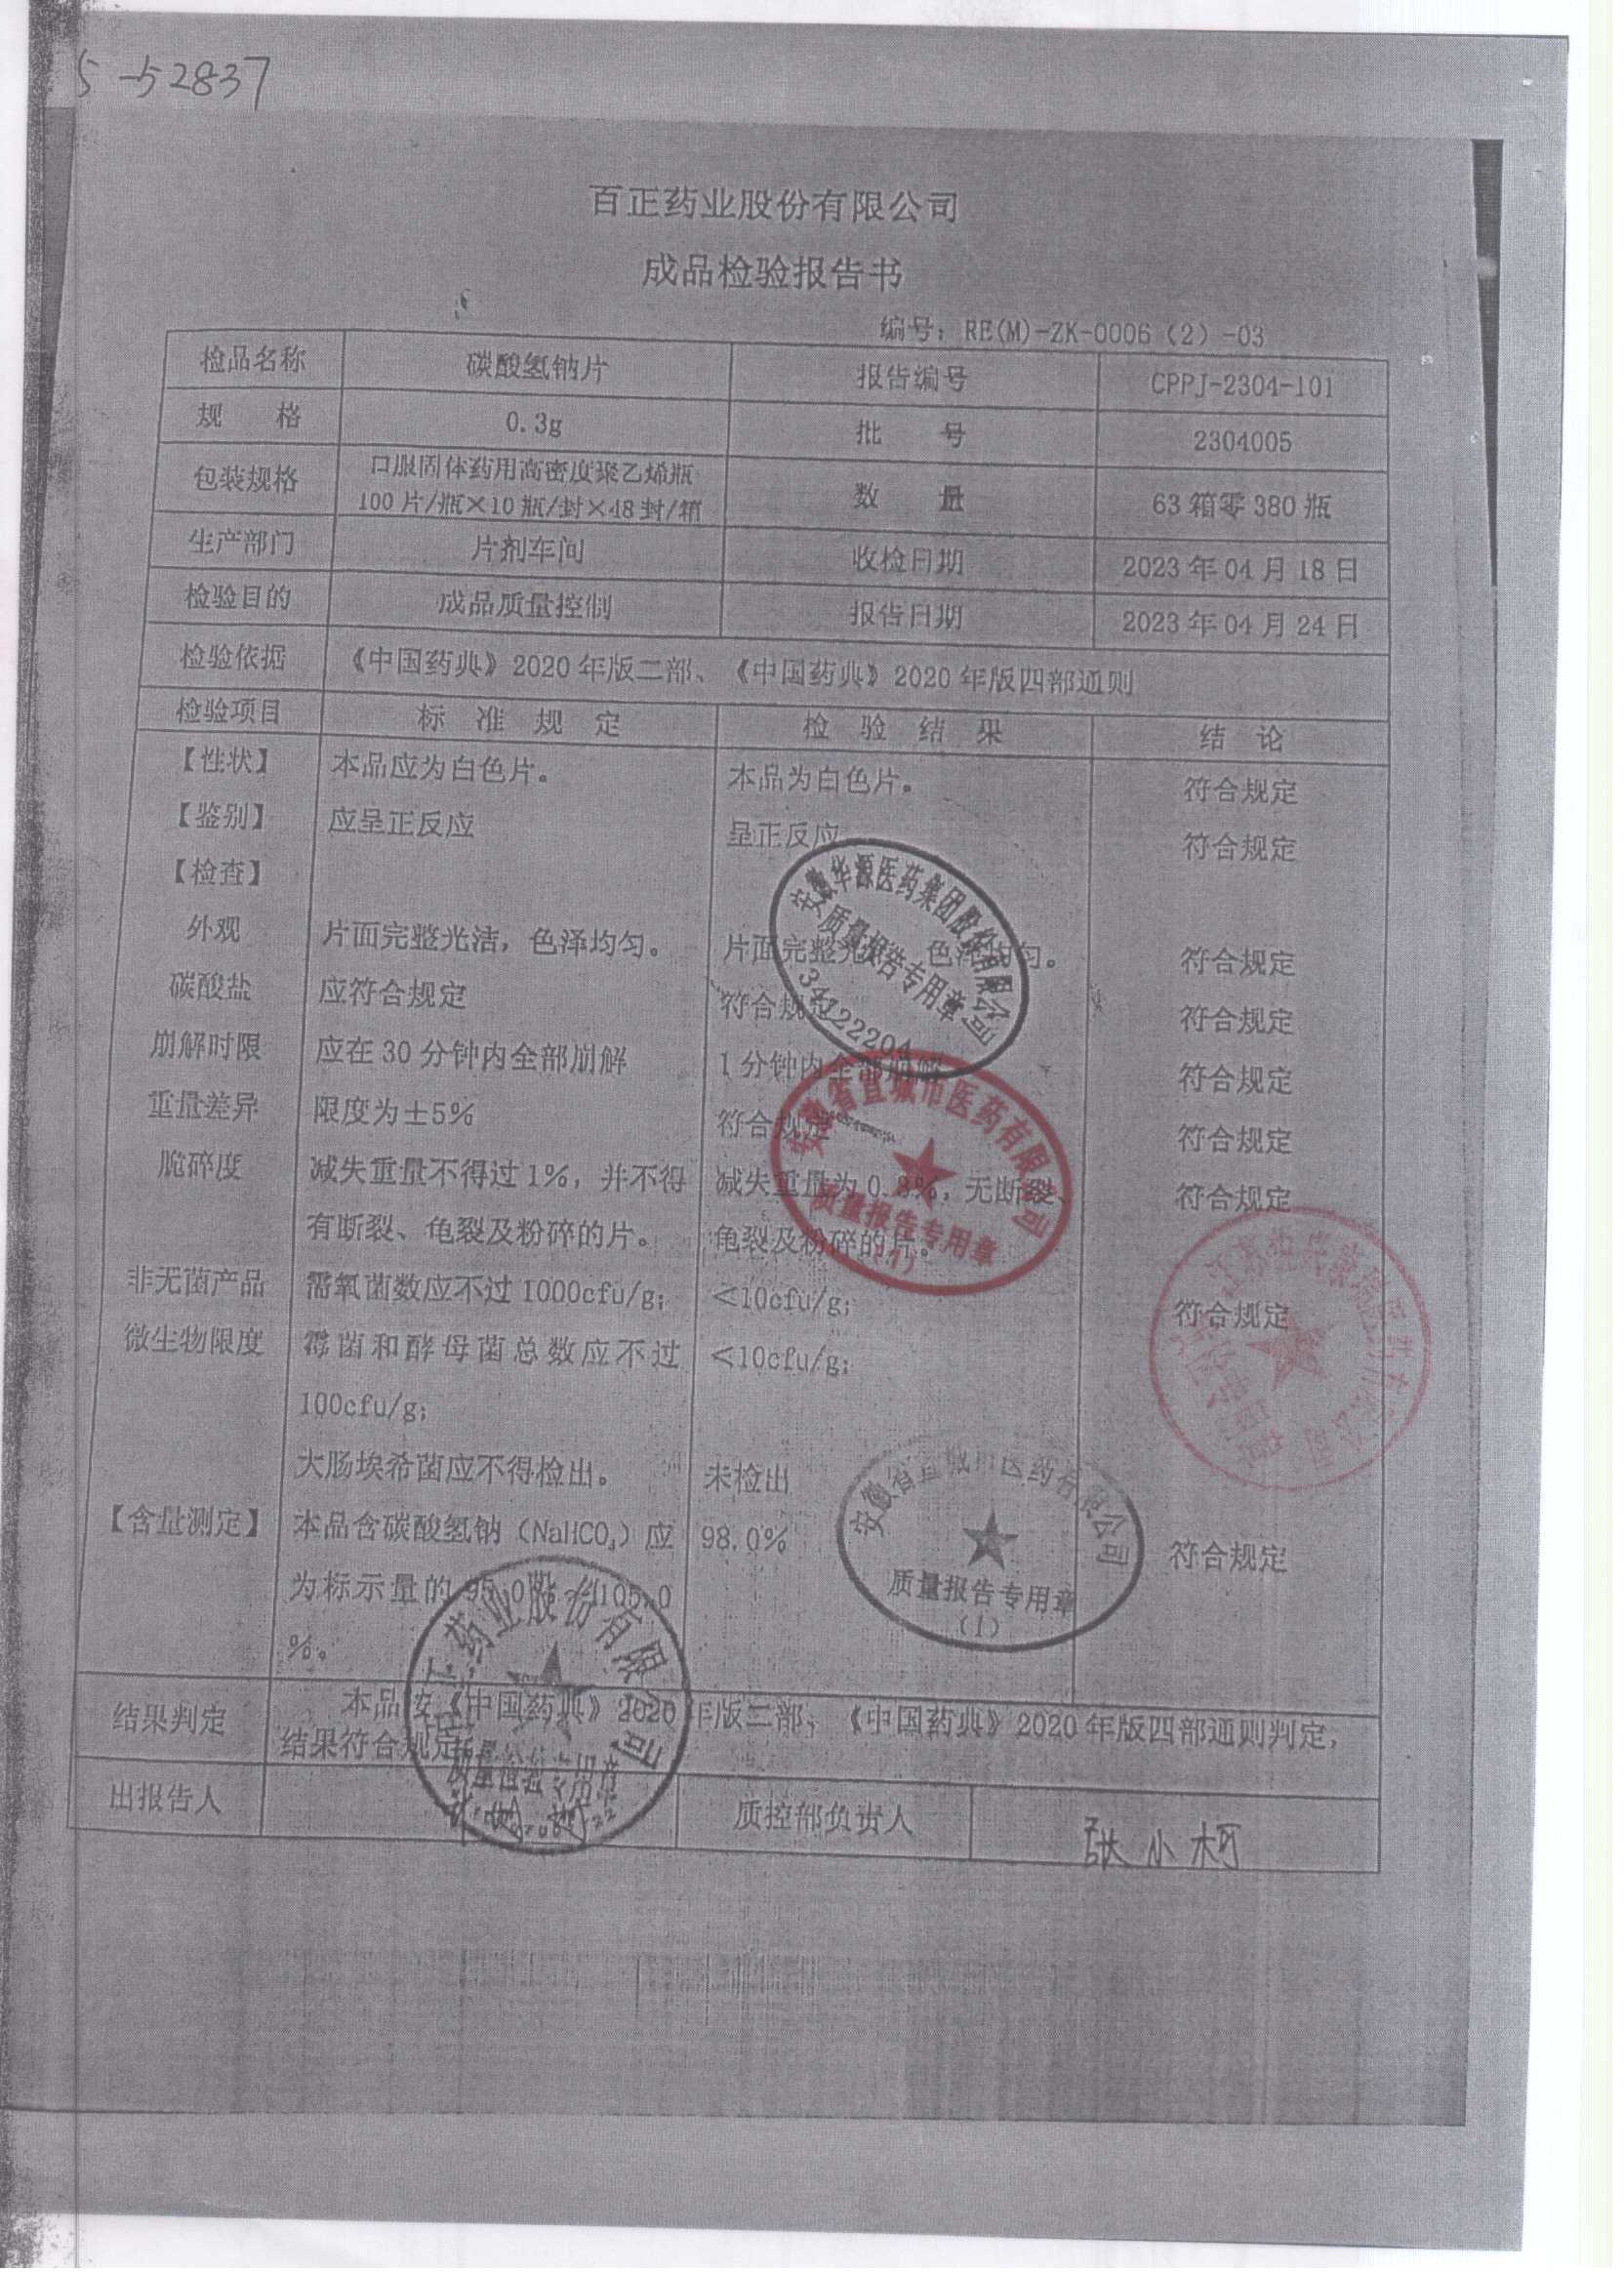 5-52837
百正药业股份有限公司
成品检验报告书
编号：RE(M)-ZK-0006（2）-03
检品名称 碳酸氢钠片 报告编号 CPPJ-2304-101
规 格 0.3g 批 号 2304005
包装规格 口服固体药用高密度聚乙烯瓶
100片/瓶×10瓶/封×48封/箱 数 量 63箱零380瓶
生产部门 片剂车间 收检日期 2023年04月18日
检验目的 成品质量控制 报告日期 2023年04月24日
检验依据 《中国药典》2020年版二部、《中国药典》2020年版四部通则
检验项目 标 准 规 定 检 验 结 果 结 论
【性状】 本品应为白色片。 本品为白色片。 符合规定
【鉴别】 应呈正反应 呈正反应 符合规定
【检查】
外观 片面完整光洁，色泽均匀。 片面完整光洁，色泽均匀。 符合规定
碳酸盐 应符合规定 符合规定 符合规定
崩解时限 应在30分钟内全部崩解 1分钟内全部崩解 符合规定
重量差异 限度为±5% 符合规定 符合规定
脆碎度 减失重量不得过1%，并不得 减失重量为0. %，无断裂、 符合规定
有断裂、龟裂及粉碎的片。 龟裂及粉碎的片。
非无菌产品 需氧菌数应不过1000cfu/g； <10cfu/g； 符合规定
微生物限度 霉菌和酵母菌总数应不过 <10cfu/g；
100cfu/g；
大肠埃希菌应不得检出。 未检出
【含量测定】 本品含碳酸氢钠（NaHCO₃）应 98.0% 符合规定
为标示量的95.0%～105.0
%。
结果判定 本品按《中国药典》2020年版二部，《中国药典》2020年版四部通则判定，
结果符合规定
出报告人 质控部负责人 张小柯
安徽华源医药集团股份有限公司
质量报告专用章
34122204
安徽省宣城市医药有限公司
质量报告专用章
(1)
安徽省宣城市医药有限公司
质量报告专用章
(1)
百正药业股份有限公司
质量检验专用章